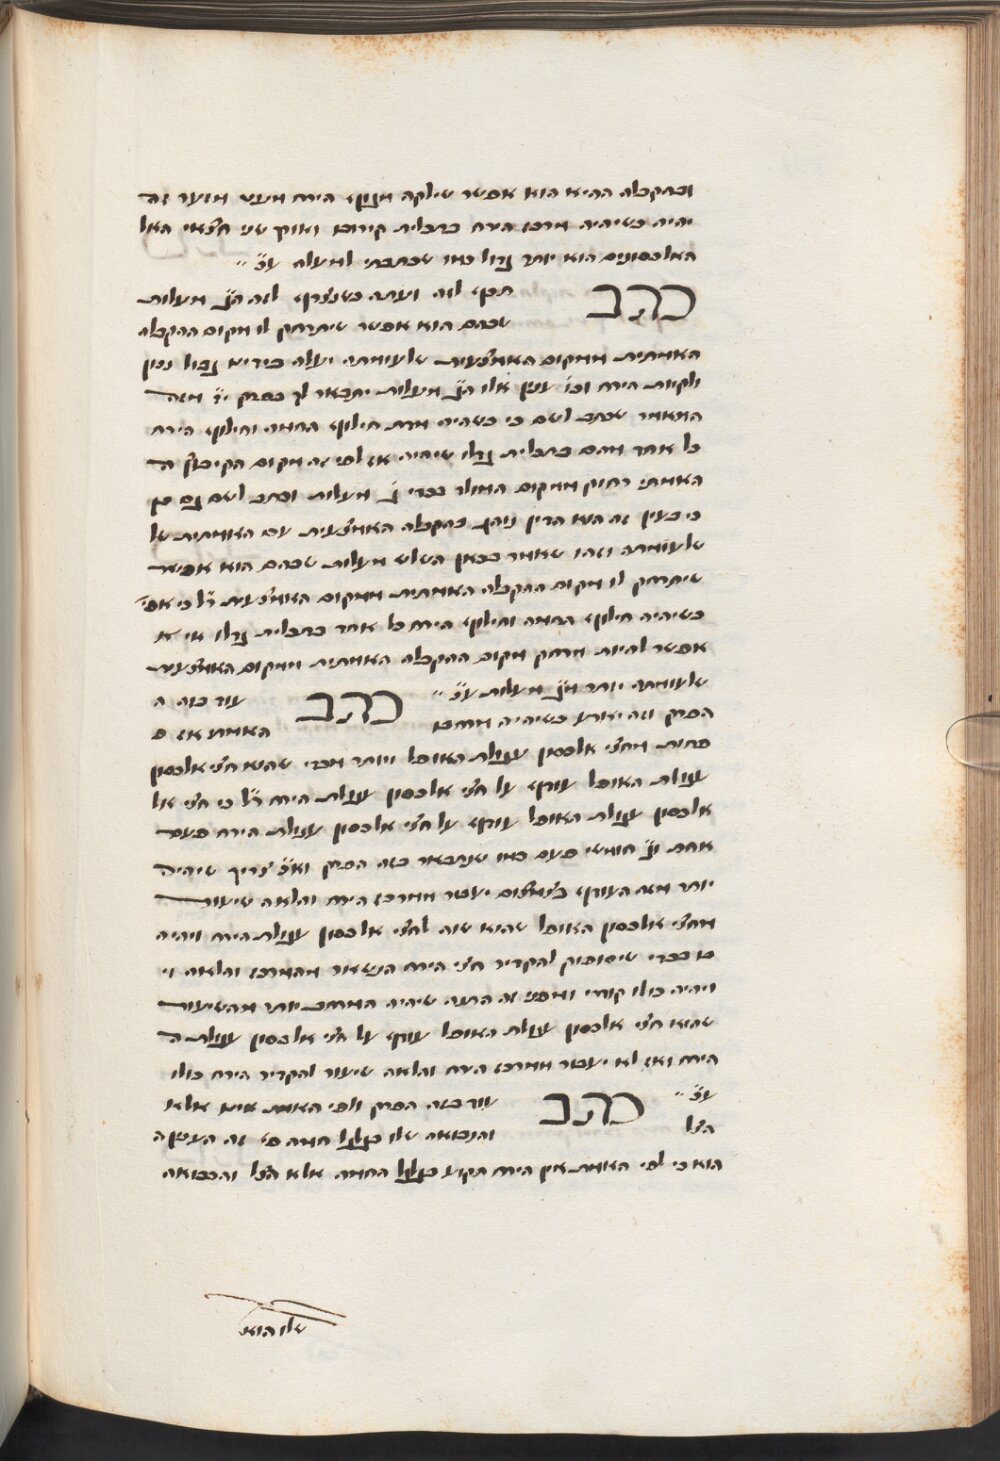 ובהקבלה ההיא הוא אפשר שילקה מגוף הירח מעט מזער זה
יהיה כשיהיה מרכז הירח בתכלית קירובו ואורך שני חצאי האל
האלכסונים הוא יותר גדול כמו שכתבתי למעלה עכ״
כתב תקף לזה ועתה כשנצרף לזה הג׳ מעלות
שבהם הוא אפשר שיתרחק לו מקום ההקבלה
האמתית ממקום האמצעית שלעומתה יעלה בידינו גבול נכון
לקיות הירח וכו׳ ענין אלו הג׳ מעלות יתבאר לך בפרק י״ז מזה
המאמר שכתב לשם כי כשהיה חלוף החמה וחילוף הירח
כל אחד מהם בתכלית גדלו שיהיה אז לפי זה מקום הקיבוץ ה
האמתי רחוק ממקום המולד בכדי ג׳ מעלות וכתב לשם גם כן
כי כעין זה הוא הדין נוהג בהקבלה האמצעית עם האמתית של
שלעומתה וזהו שאמר בכאן השלש מעלות שבהם הוא אפשר
שיתרחק לו מקום ההקבלה האמתית ממקום האמצעית ר״ל כי אפי׳
כשיהיה חילוף החמה וחילוף הירח כל אחד בתכלית גדלו אי א
אפשר להיות מרחק מקום ההקבלה האמתית ממקום האמצעית
שלעומתה יותר מג׳ מעלות עכ״ כתב עוד בזה ה
הפרק וזה יארע כשיהיה מרחבו האמת אז פ
פחות מחצי אלכסון עגולת האופל ויותר מכדי שהוא חצי אלכסון
עגולת האופל עודף על חצי אלכסון עגולת הירח ר״ל כי חצי אל
אלכסון עגולת האופל עודף על חצי אלכסון עגולת הירח פעם
אחת וג׳ חומשי פעם כמו שנתבאר בזה הפרק וא״כ צריך שיהיה
יותר מזה העודף בצמצום יעבור ממרכז הירח והלאה שיעור
מחצי אלכסון האופל שהוא שוה לחצי אלכסון עגולת הירח ויהיה
בו בכדי שיספיק להקדיר חצי הירח הנשאר מהמרכז והלאה וי
ויהיה כולו קודר ומפני זה התנה שיהיה המרחב יותר מהשיעור
שהוא חצי אלכסון עגולת האופל עודף על חצי אלכסון עגולת ה
הירח ואז לא יעבור ממרכז הירח והלאה שיעור להקדיר הירח כולו
עכ״ כתב עוד בזה הפרק ולפי האמת אינו אלא
הצל והנבואה שלו בגלגל חמה פי׳ זה הענין ה
הוא כי לפי האמת אין הירח תקוע בגלגל החמה אלא הצל והבבואה
שלו הוא